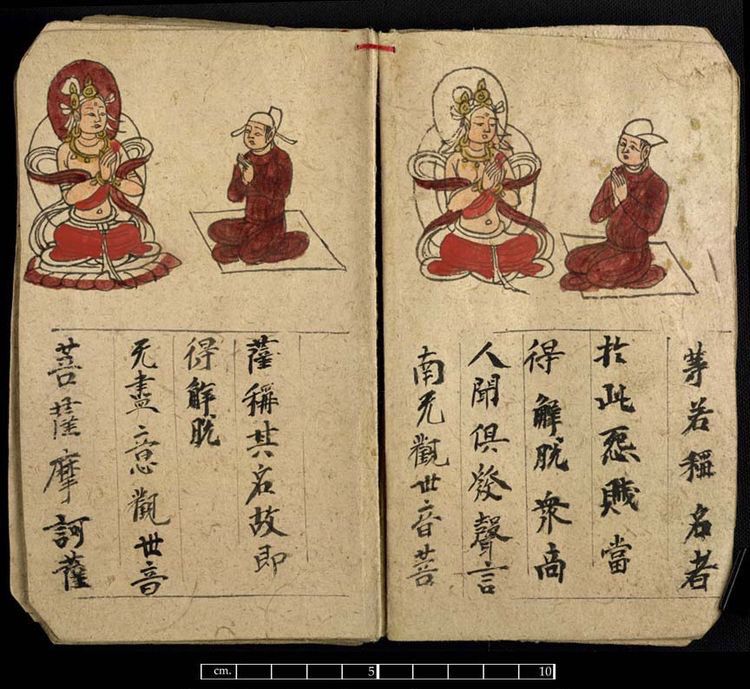 等若稱名者
扵此怨賊當
得解脱衆啇
人聞俱發聲言
南无觀世音菩
薩稱其名故即
得解脱
无盡意觀世音
菩薩摩訶薩
cm. 5 10